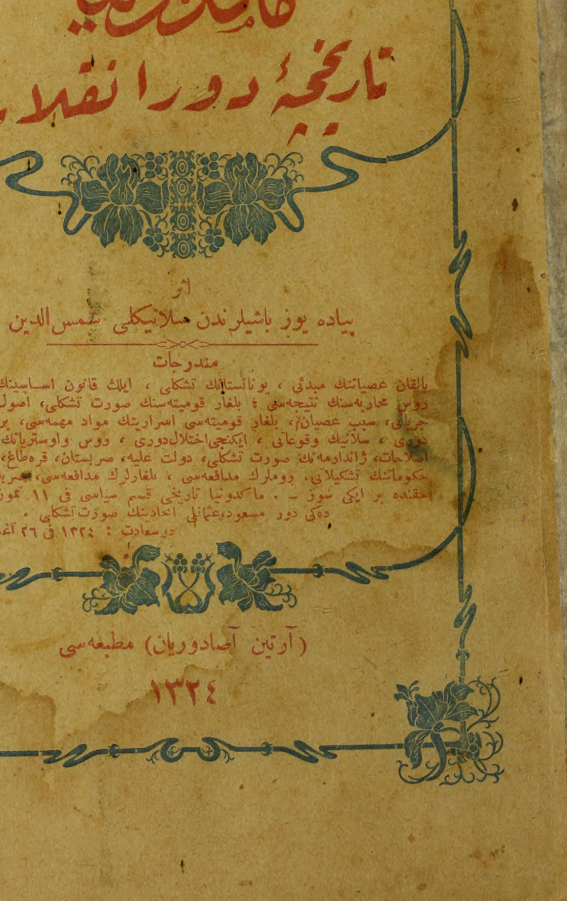 تاریخچهٔ دور انقلاب
اثر
پیاده یوز باشیلرندن سلانیكلی شمس‌الدین
مندرجات
بالقان عصیاننك مبدئی ، یونانستانك تشكلی ، ایلك قانون اساسینك
روس محاربه‌سنك نتیجه‌سی ؛ بلغار قومیته‌سنك صورت تشكلی، اصول
جریانی، سبب عصیان، بلغار قومیته‌سی اسرارینك مواد مهمه‌سی، بر
دوری ، سلانیك وقوعاتی ، ایكنجی اختلال دوری ، روس واوستریانك
اصلاحات، ژاندارمه‌نك صورت تشكلی، دولت علیه، صربستان، قره‌طاغ،
حكوماتنك تشكیلاتی. روملرك مدافعه‌سی ، بلغارلرك مدافعه‌سی،
حقنده بر ایكی سوز ــ . ماكدونیا تاریخی قسم سیاسی فی ١١ تموز
ده‌كی دور مسعود، عثمانلی اتحادینك صورت تشكلی .
درسعادت : ١٣٢٤ فی ٢٦
(آرتین آصادوریان) مطبعه‌سی
١٣٢٤